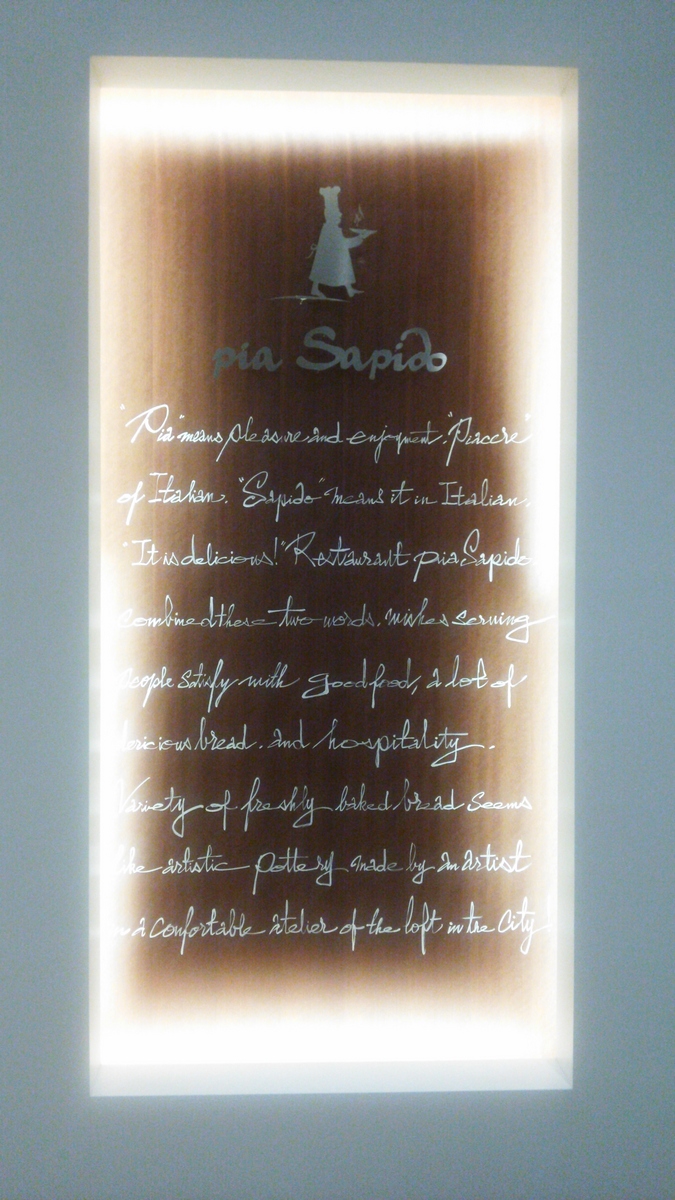 pia Sapido
"Pia" means pleasure and enjoyment. "Piacere"
of Italian. "Sapido" means it in Italian.
"It is delicious!" Restaurant pia Sapido
combined these two words. wishes serving
people satisfy with good food, a lot of
dericious bread. and hospitality.
Variety of freshly baked bread seems
like artistic pottery made by an artist
in a confortable atelier of the loft in the City!